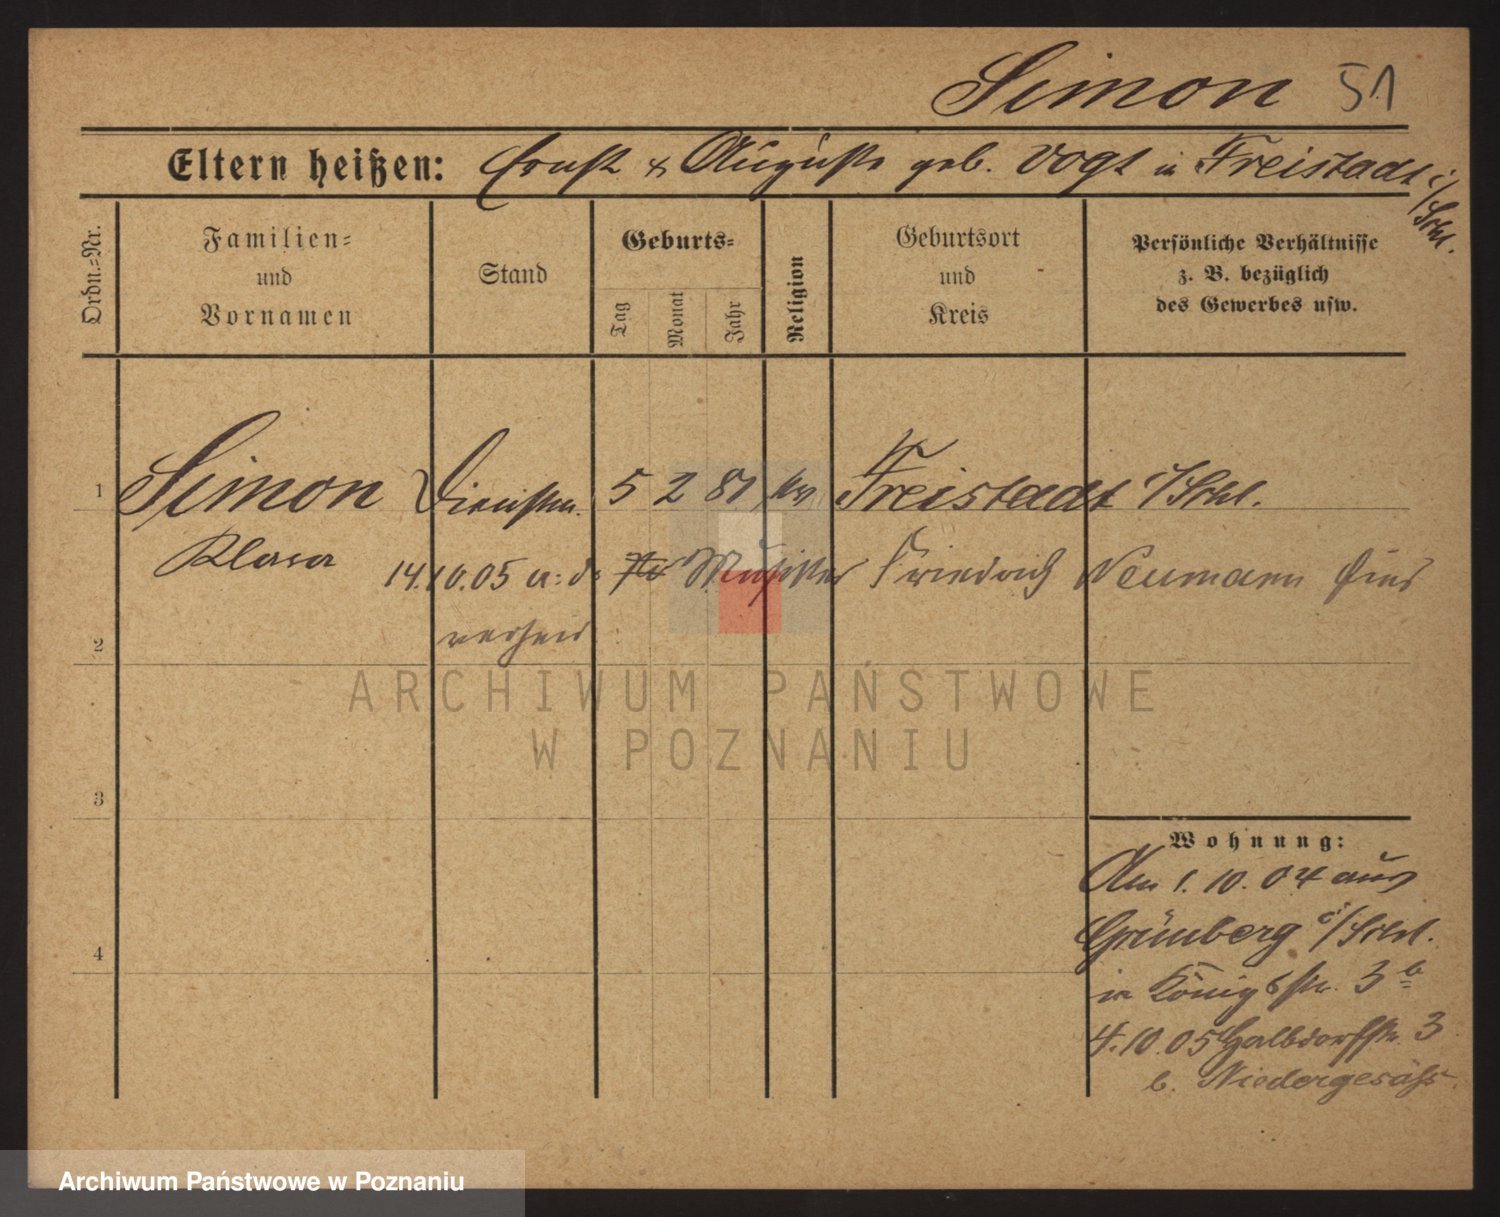 Simon 51
Eltern heißen: Ernst & Auguste geb. Vogt in Freistadt i/Schl.
Ordn.-Nr.
Familien-
und
Vornamen
Stand
Geburts-
Tag
Monat
Jahr
Religion
Geburtsort
und
Kreis
Persönliche Verhältnisse
z. B. bezüglich
des Gewerbes usw.
1 Simon Dienstm. 5 2 81 Freistadt i/Schl.
Klara
14.10.05 a: d: Musiker Friedrich Neumann hier
2 verheir
ARCHIWUM PAŃSTWOWE
W POZNANIU
3
Wohnung:
Am 1. 10. 04 aus
Grünberg i/Schl.
4
in Königsstr. 3 b
4.10.05 Halbdorfstr. 3
b. Niedergesäss
Archiwum Państwowe w Poznaniu